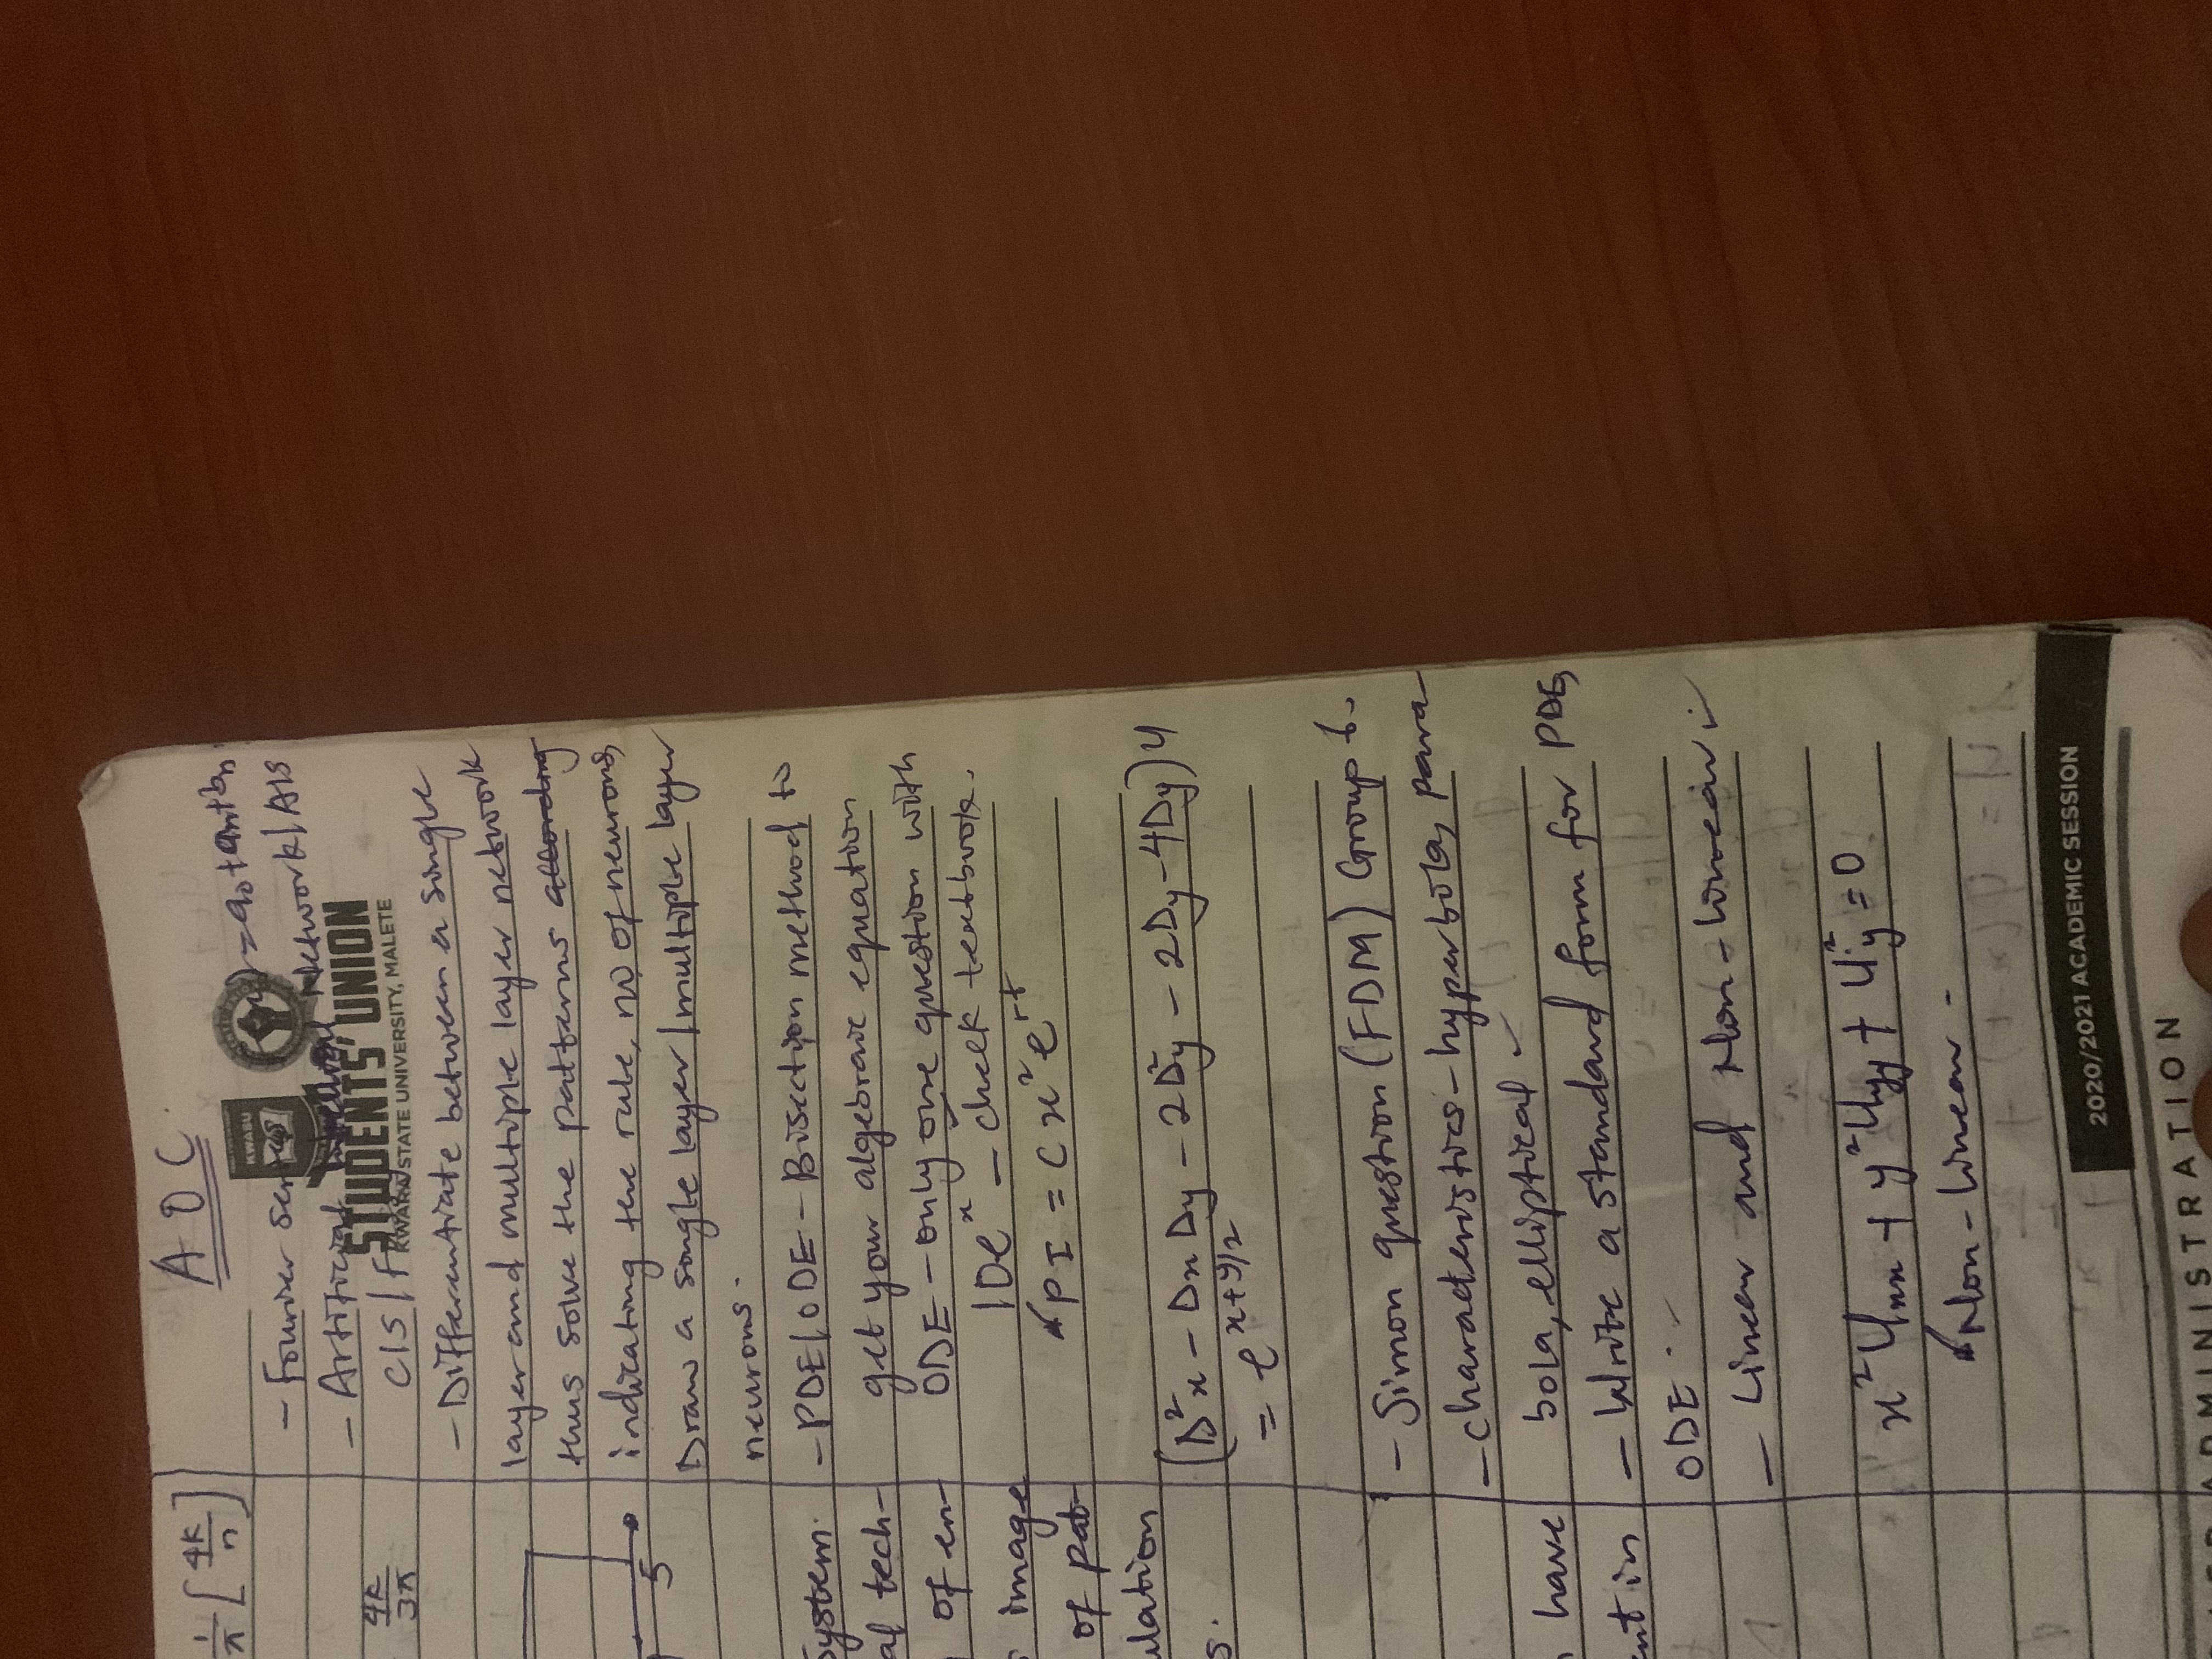 A O C
- Fourier series
= a0 + an + bn
- Artificial Neural Network/AIS
CIS/F
KWASU
STUDENTS' UNION
KWARA STATE UNIVERSITY, MALETE
- Differentiate between a single
layer and multiple layer network
thus solve the patterns according
indicating the rule, no of neurons,
Draw a single layer/multiple layer
neurons.
- PDE/ODE - Bisection method to
get your algebraic equation
ODE - only one question with
10e^x - check textbook.
PI = Cx²e^rt
(D²x - DxDy - 2D²y - 2Dy - 4Dy)4
= e^x+y/2
- Simon question (FDM) Group 6.
- Characteristics - hyperbola, para-
bola, elliptical ✓
- Write a standard form for PDE,
ODE.
- Linear and Non-linear ✓
x²Uxx + y²Uyy + U²y = 0
Non-linear -
1/π [4K/n]
4K/3π
5
System.
al tech-
of en-
image
of pat-
ulation
s.
have
ent in
2020/2021 ACADEMIC SESSION
ADMINISTRATION